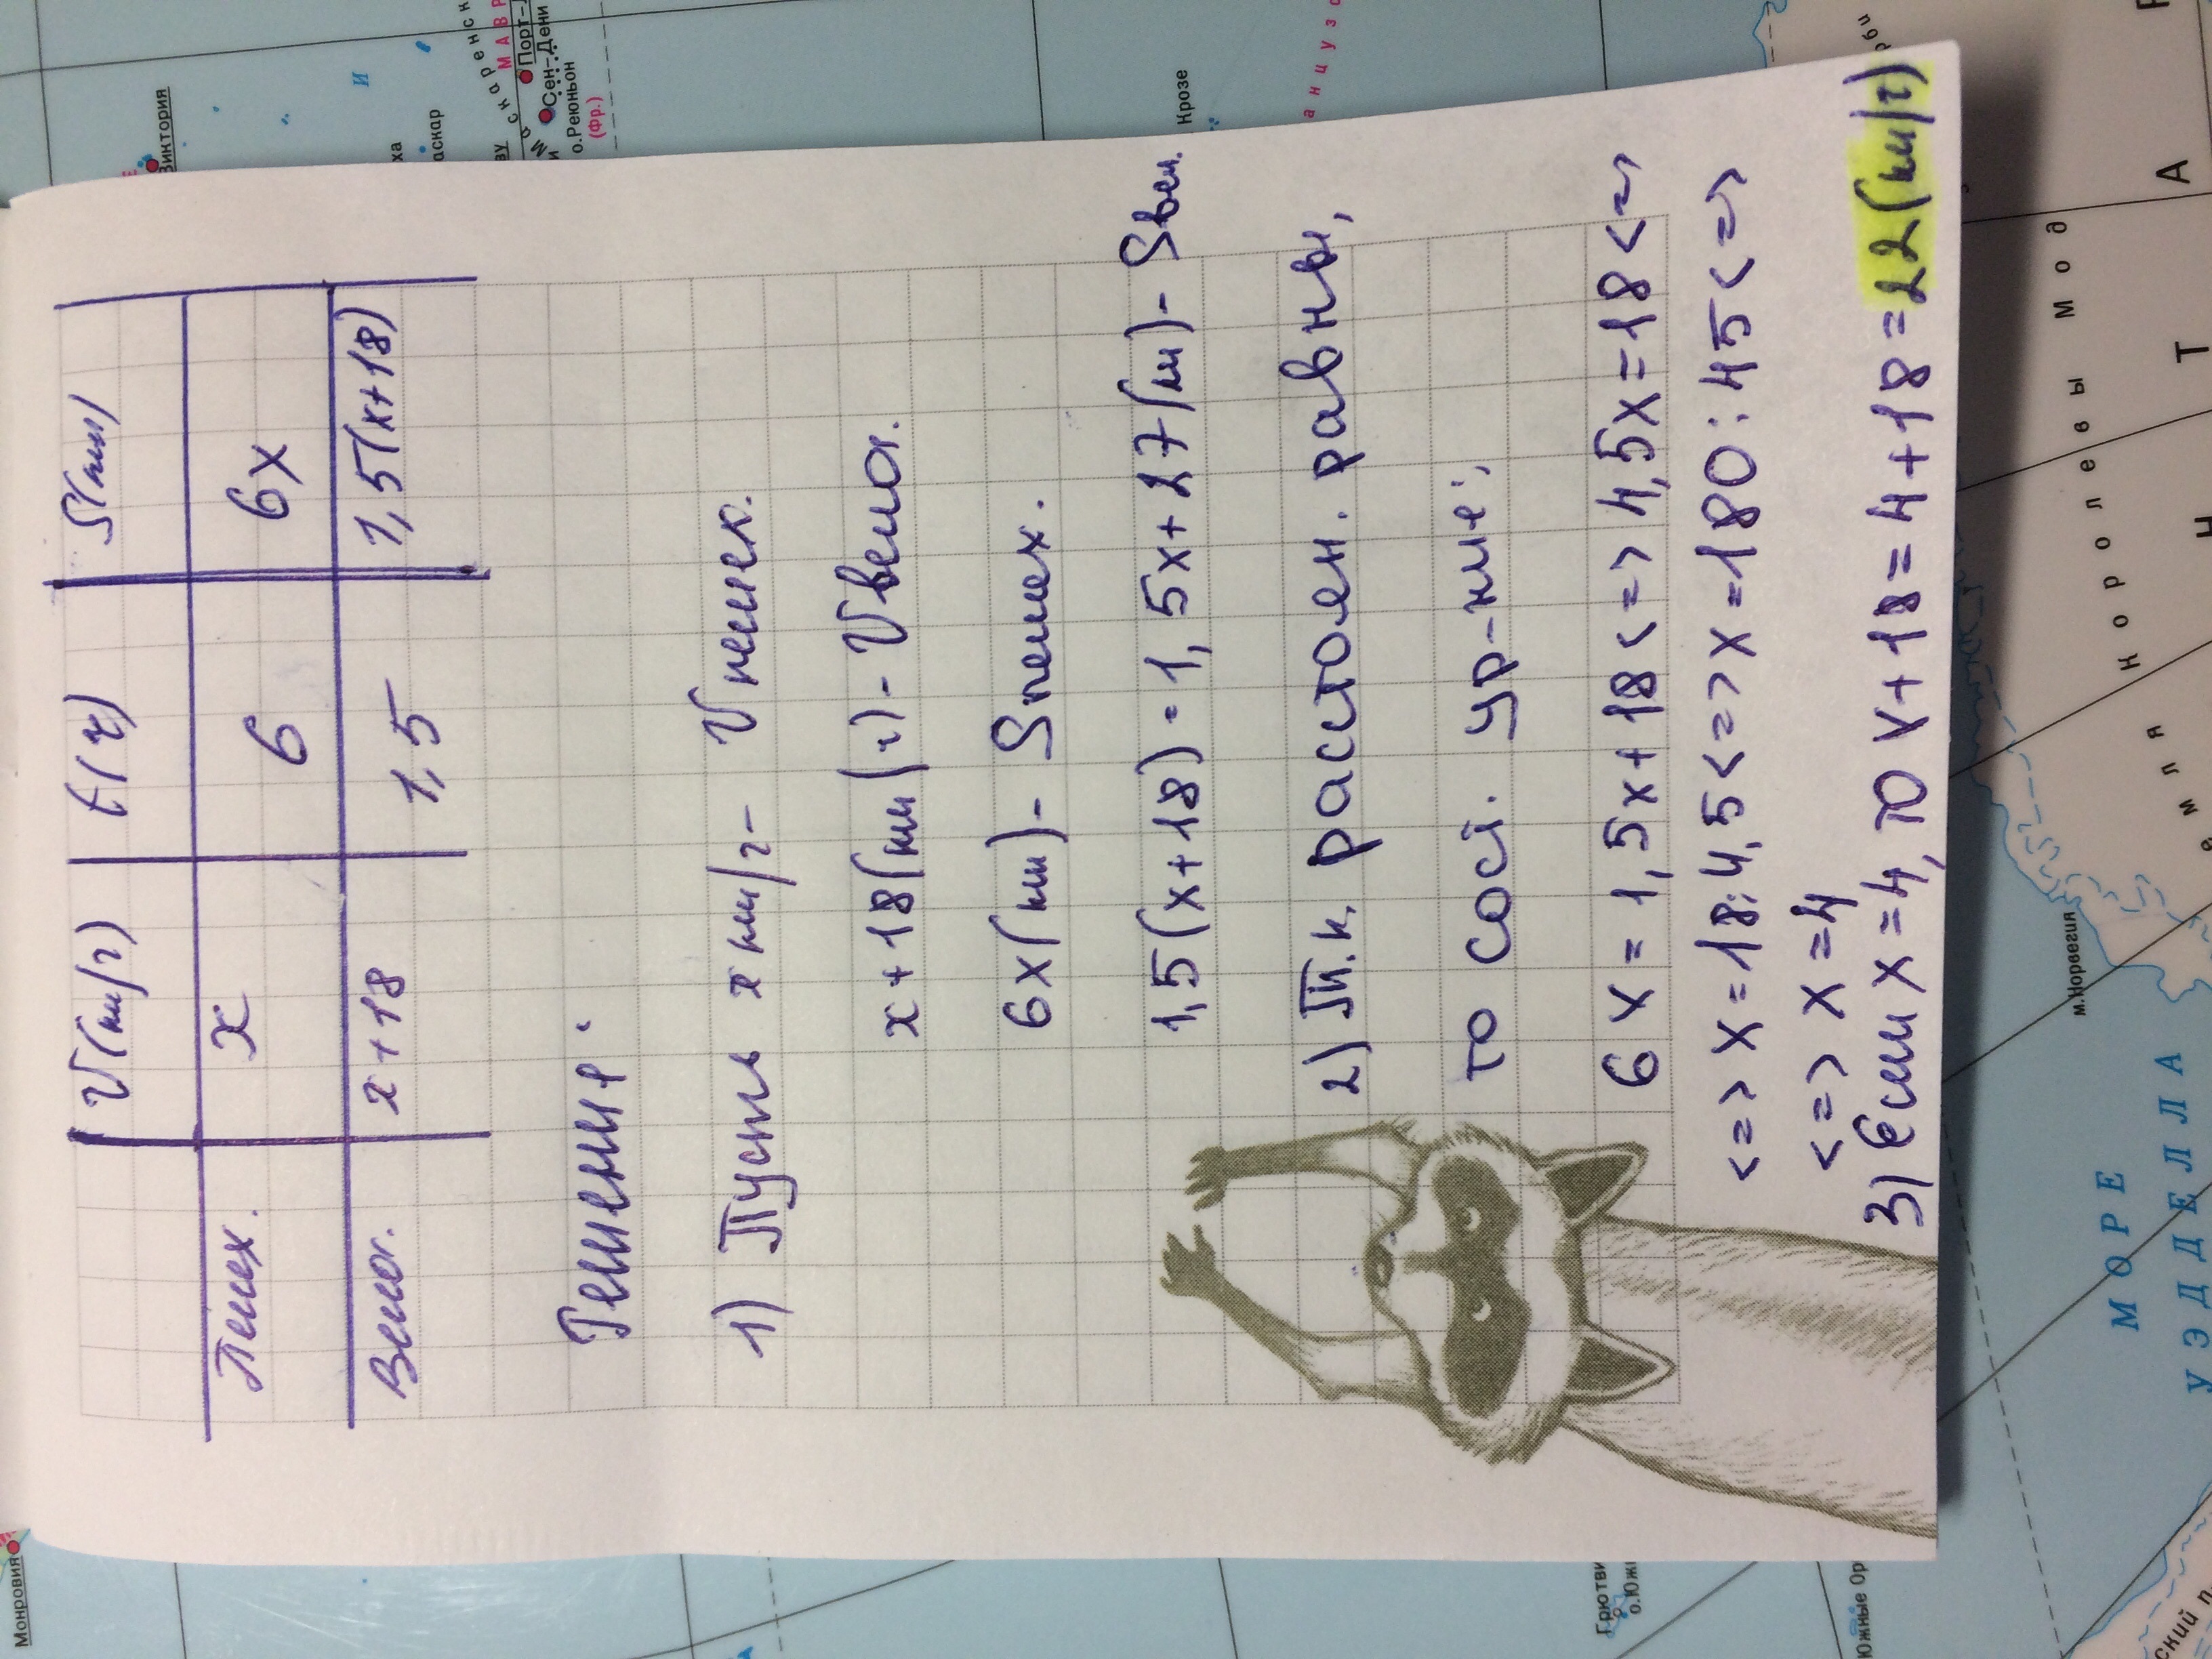 V(км/ч) t(ч) S(км)
Пешех. x 6 6x
Велос. x+18 1,5 1,5(x+18)
Решение:
1) Пусть x км/ч - V пешех.
x+18(км/ч) - V велос.
6x(км) - S пешех.
1,5(x+18) = 1,5x+27(км) - S вел.
2) Т.к. расстоян. равны,
то сост. ур-ние:
6x = 1,5x+18 <=> 4,5x=18 <=>
<=> x=18:4,5 <=> x=180:45 <=>
<=> x=4
3) Если x=4, то x+18=4+18=22(км/ч)
Монровия
Виктория
Порт-
Сен-Дени
о.Реюньон
(Фр.)
И
аскар
Крозе
м.Норвегия
МОРЕ
УЭДДЕЛЛА
Южные Ор